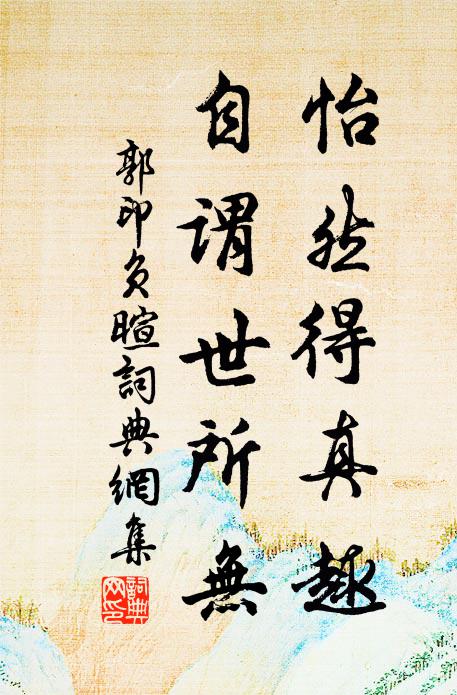 怡然得真趣
自謂世所無
郭印負暄詞典網集
詞典